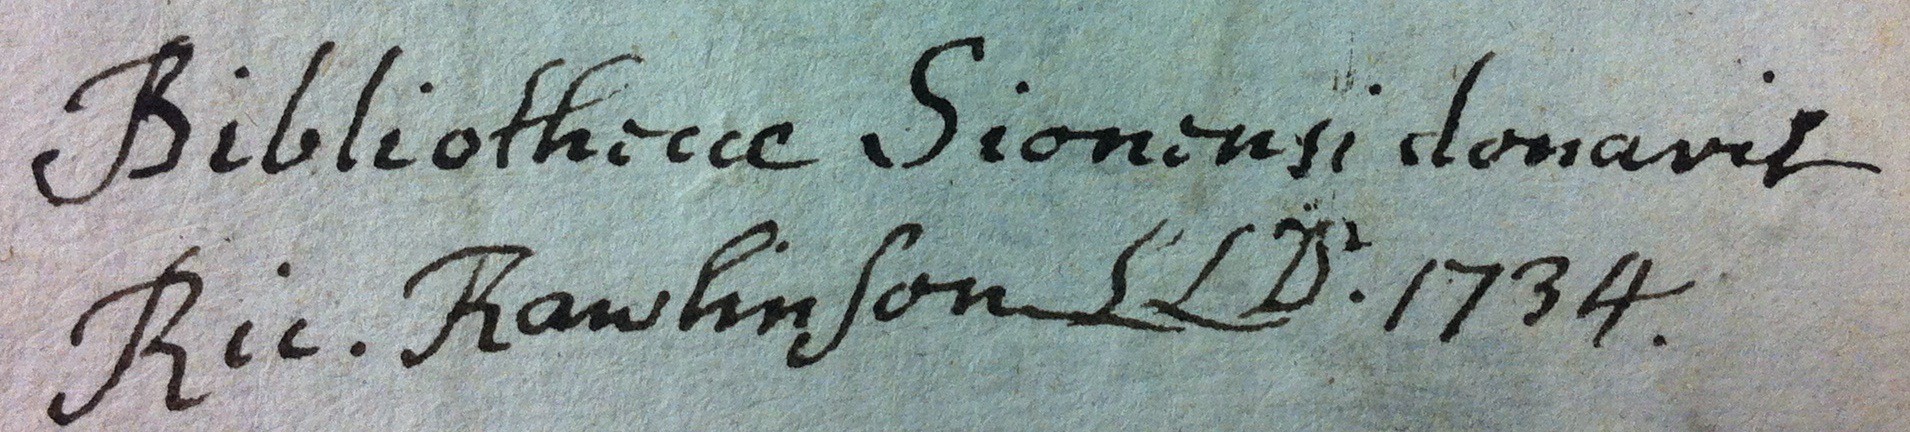 Bibliothecæ Sionensi donavit
Ric. Rawlinſon LLD. 1734.